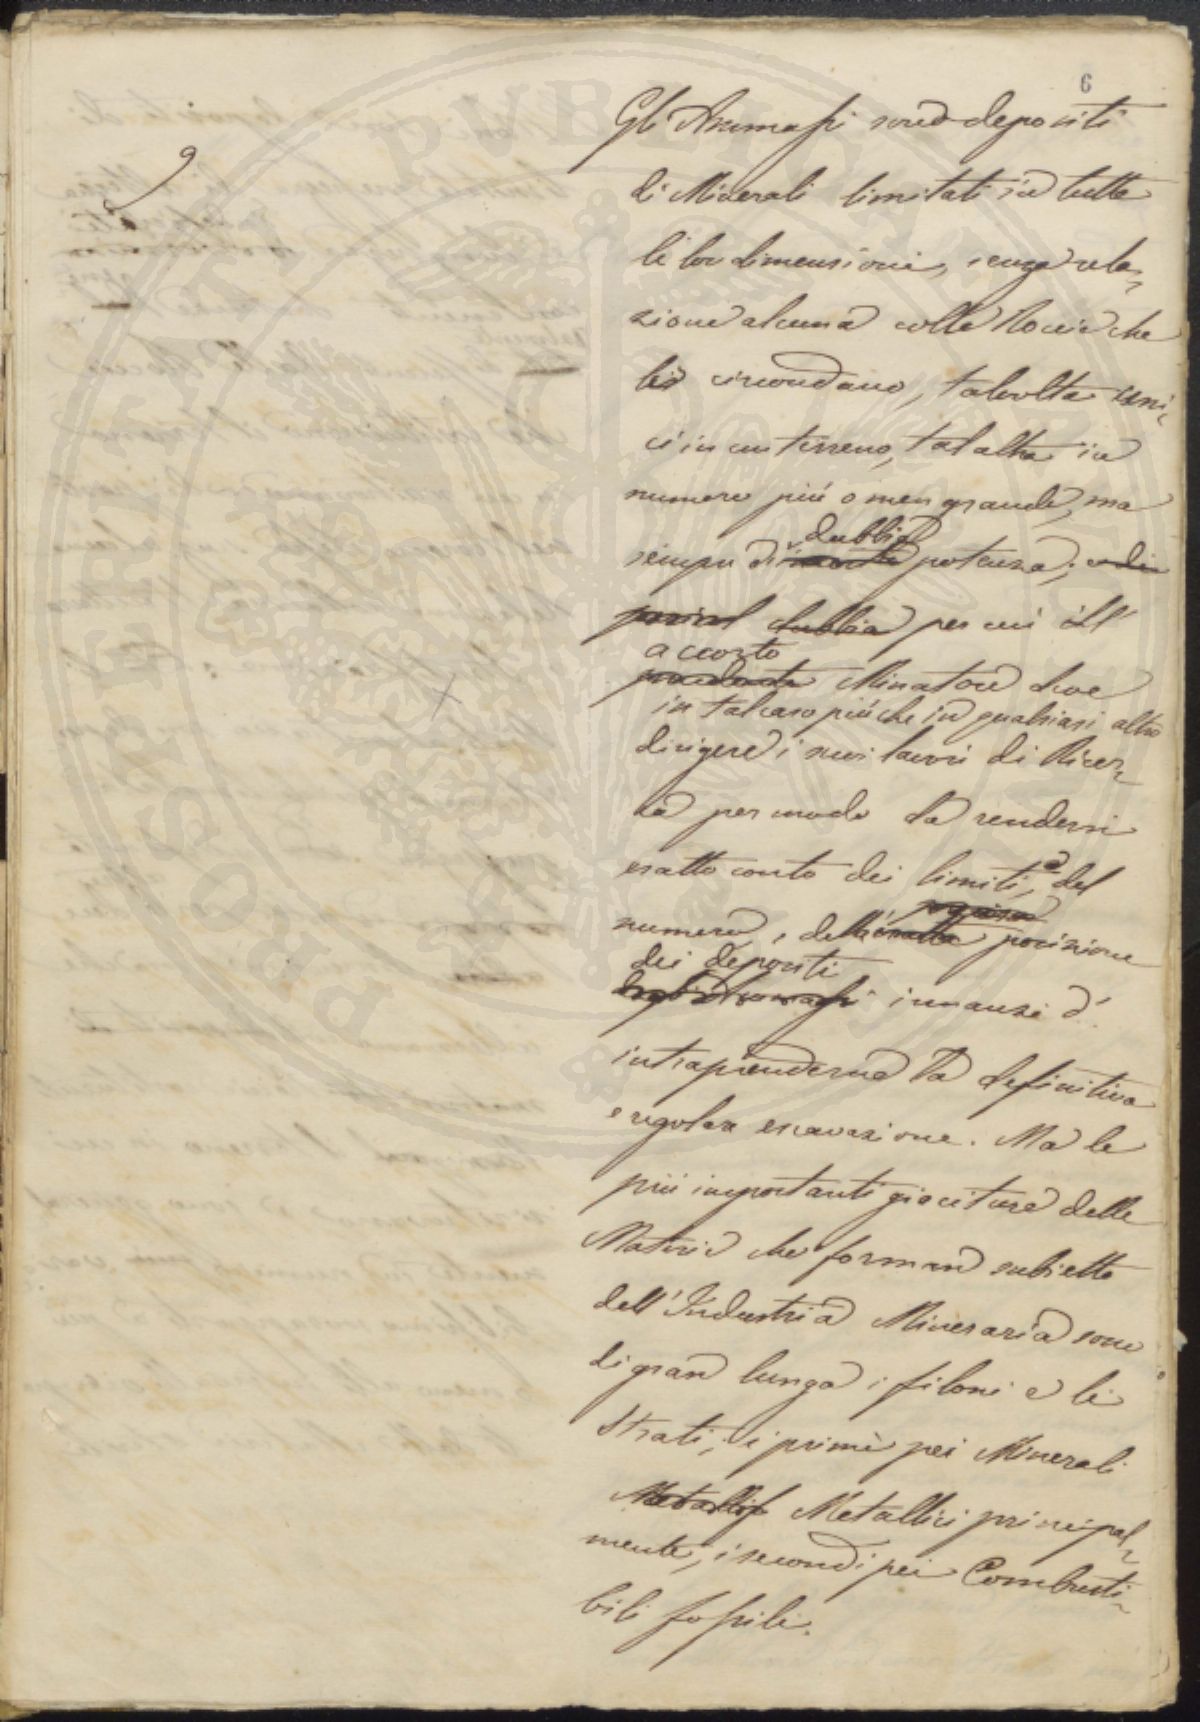 6
9
Gli Ammassi sono depositi
di Minerali limitati in tutte
le lor dimensioni, senza rela„
zione alcuna colle Roccie che
li circondano, talvolta uni„
ci in un terreno, tal altra in
numero più o men grande, ma
dubbia
sempre di potenza;
dubbia per cui ill'
accorto
Minatore deve
in tal caso più che in qualsiasi altro
dirigere i suoi lavori di Ricer„
ca per modo da rendersi
esatto conto dei limiti, del
numero, dell'esatta posizione
dei depositi
degli Ammassi innanzi d'
intraprenderne la definitiva
e regolare escavazione. Ma le
più importanti giaciture delle
Materie che formano subietto
dell'Industria Mineraria sono
di gran lunga i filoni e li
Strati; i primi pei Minerali
Metallici principal„
mente, i secondi pei Combusti„
bili fossili.
PROSPERITATI PVBLICAE